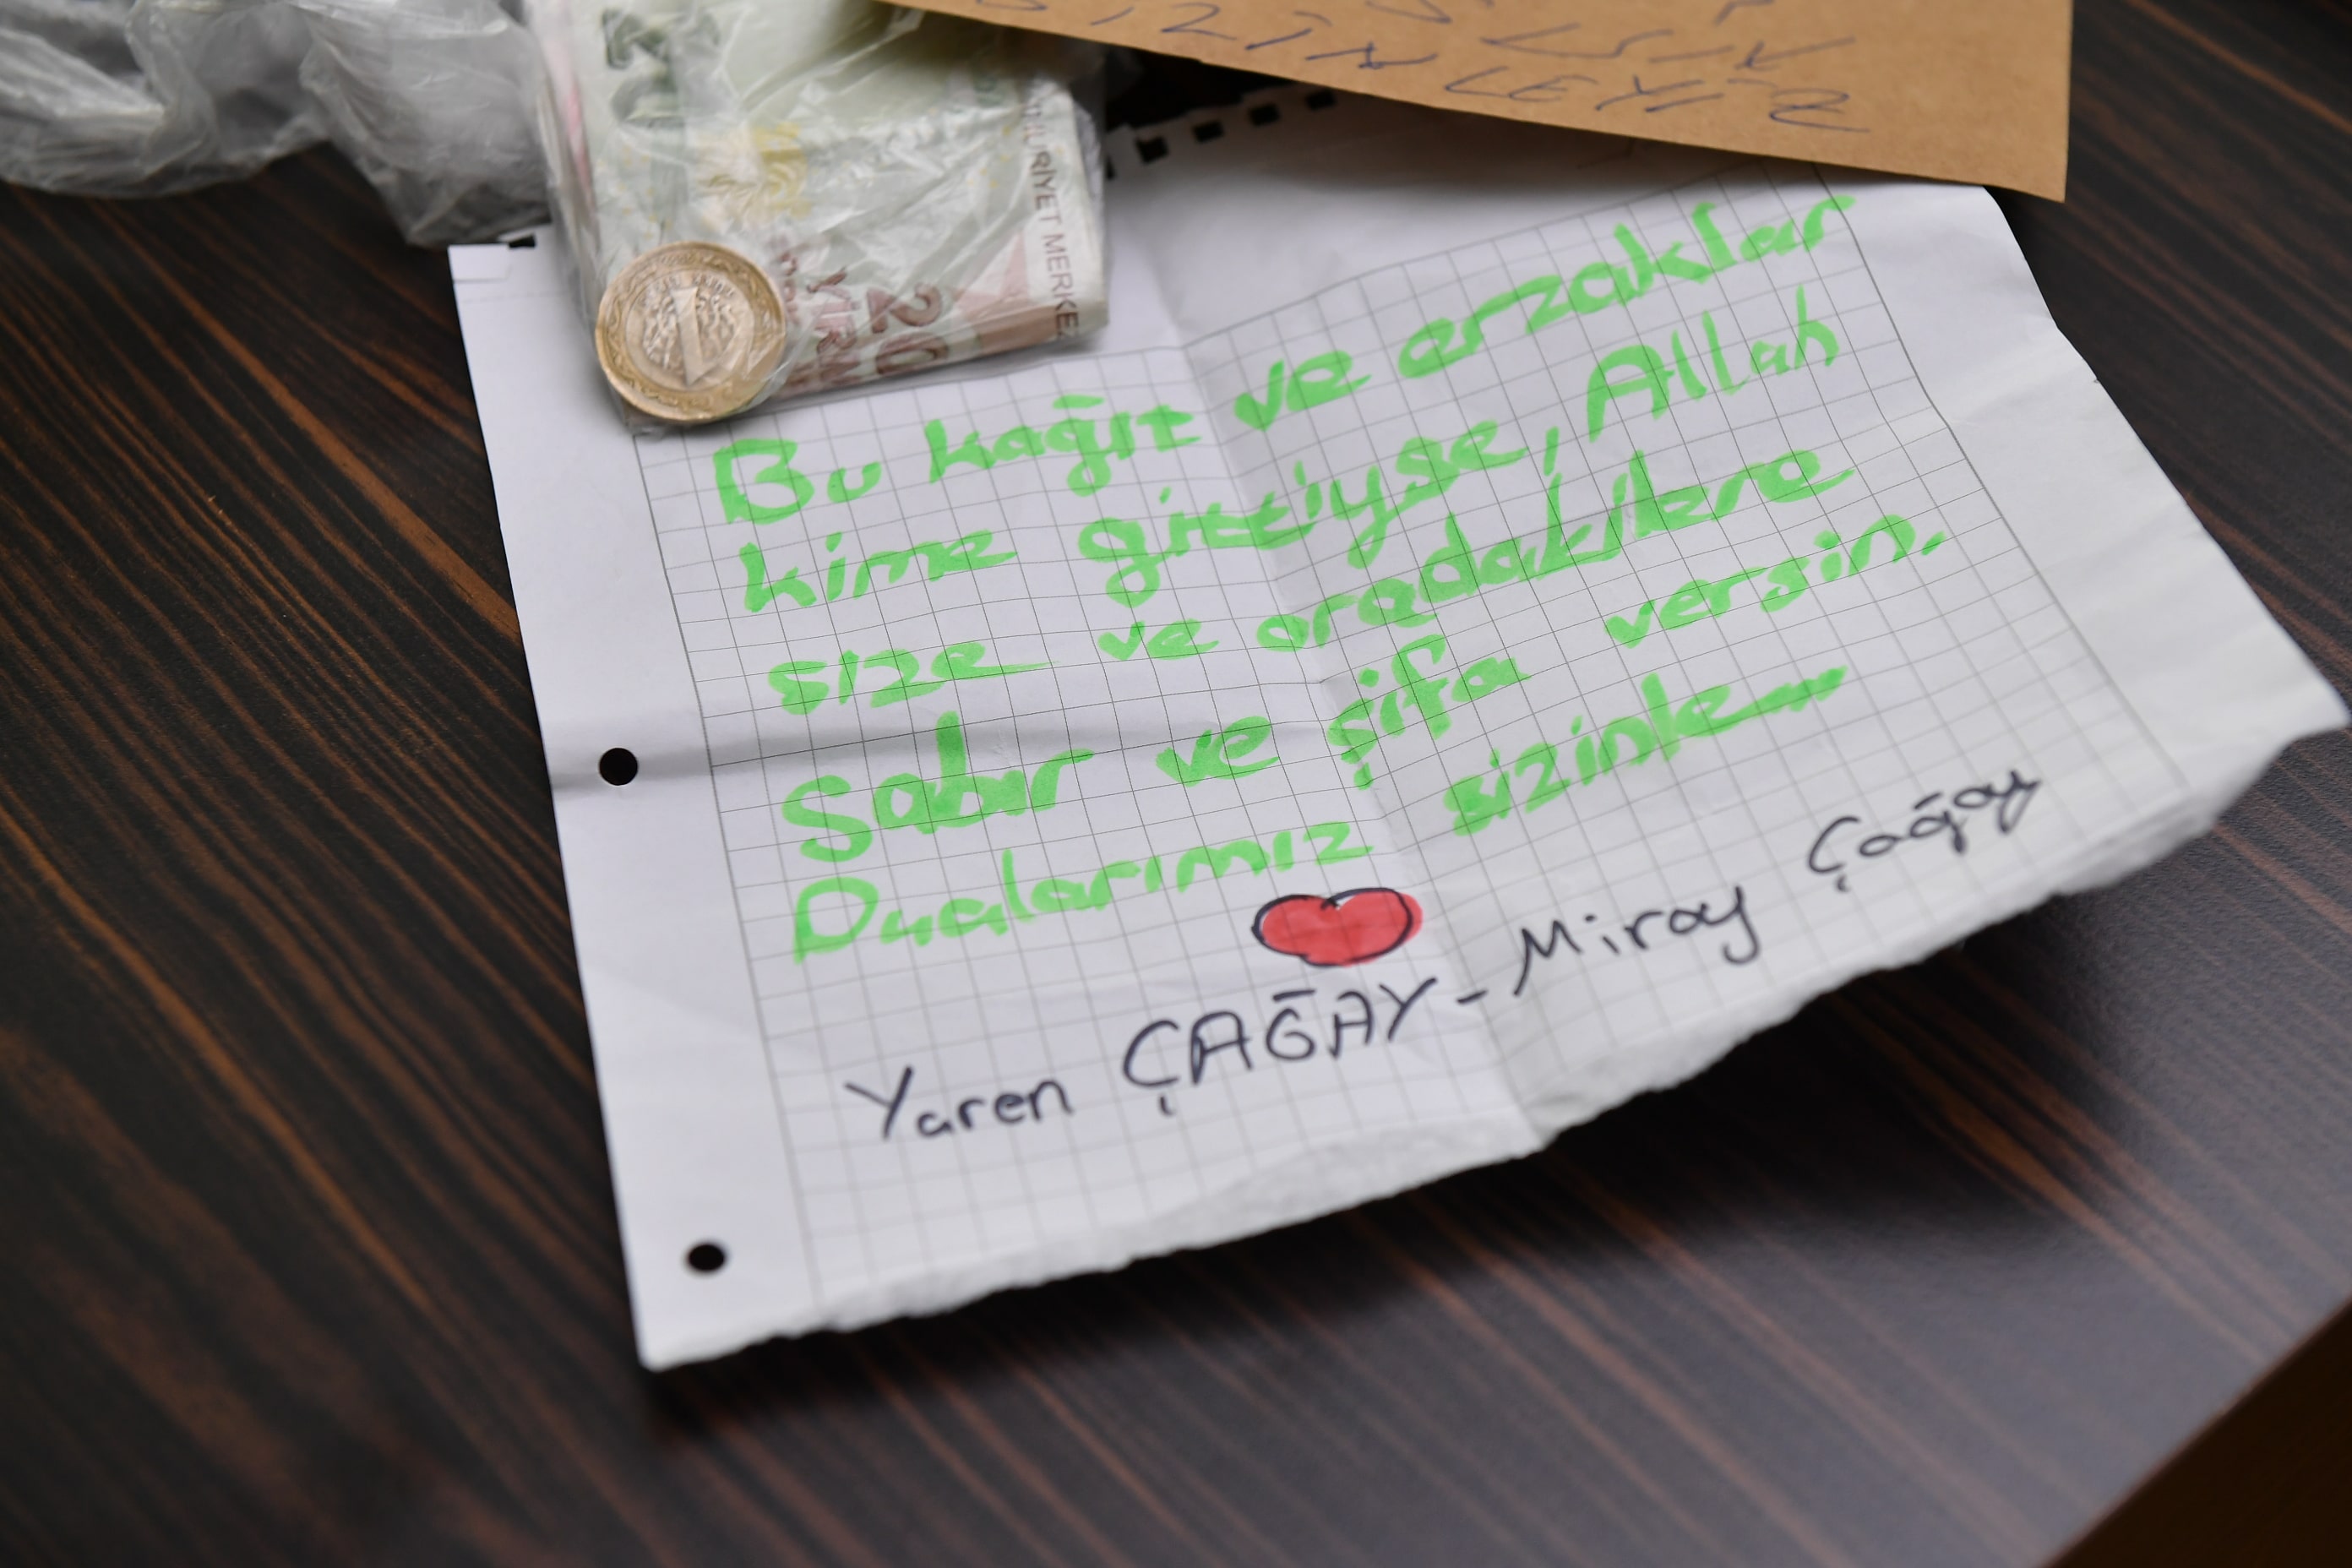 SİZİNLEYİZ
20
CUMHURİYET MERKEZ
20
1
Bu kağıt ve erzaklar
kime gittiyse, Allah
size ve oradakilere
Sabır ve şifa versin.
Dualarımız sizinle
Yaren ÇAĞAY - Miray Çağay